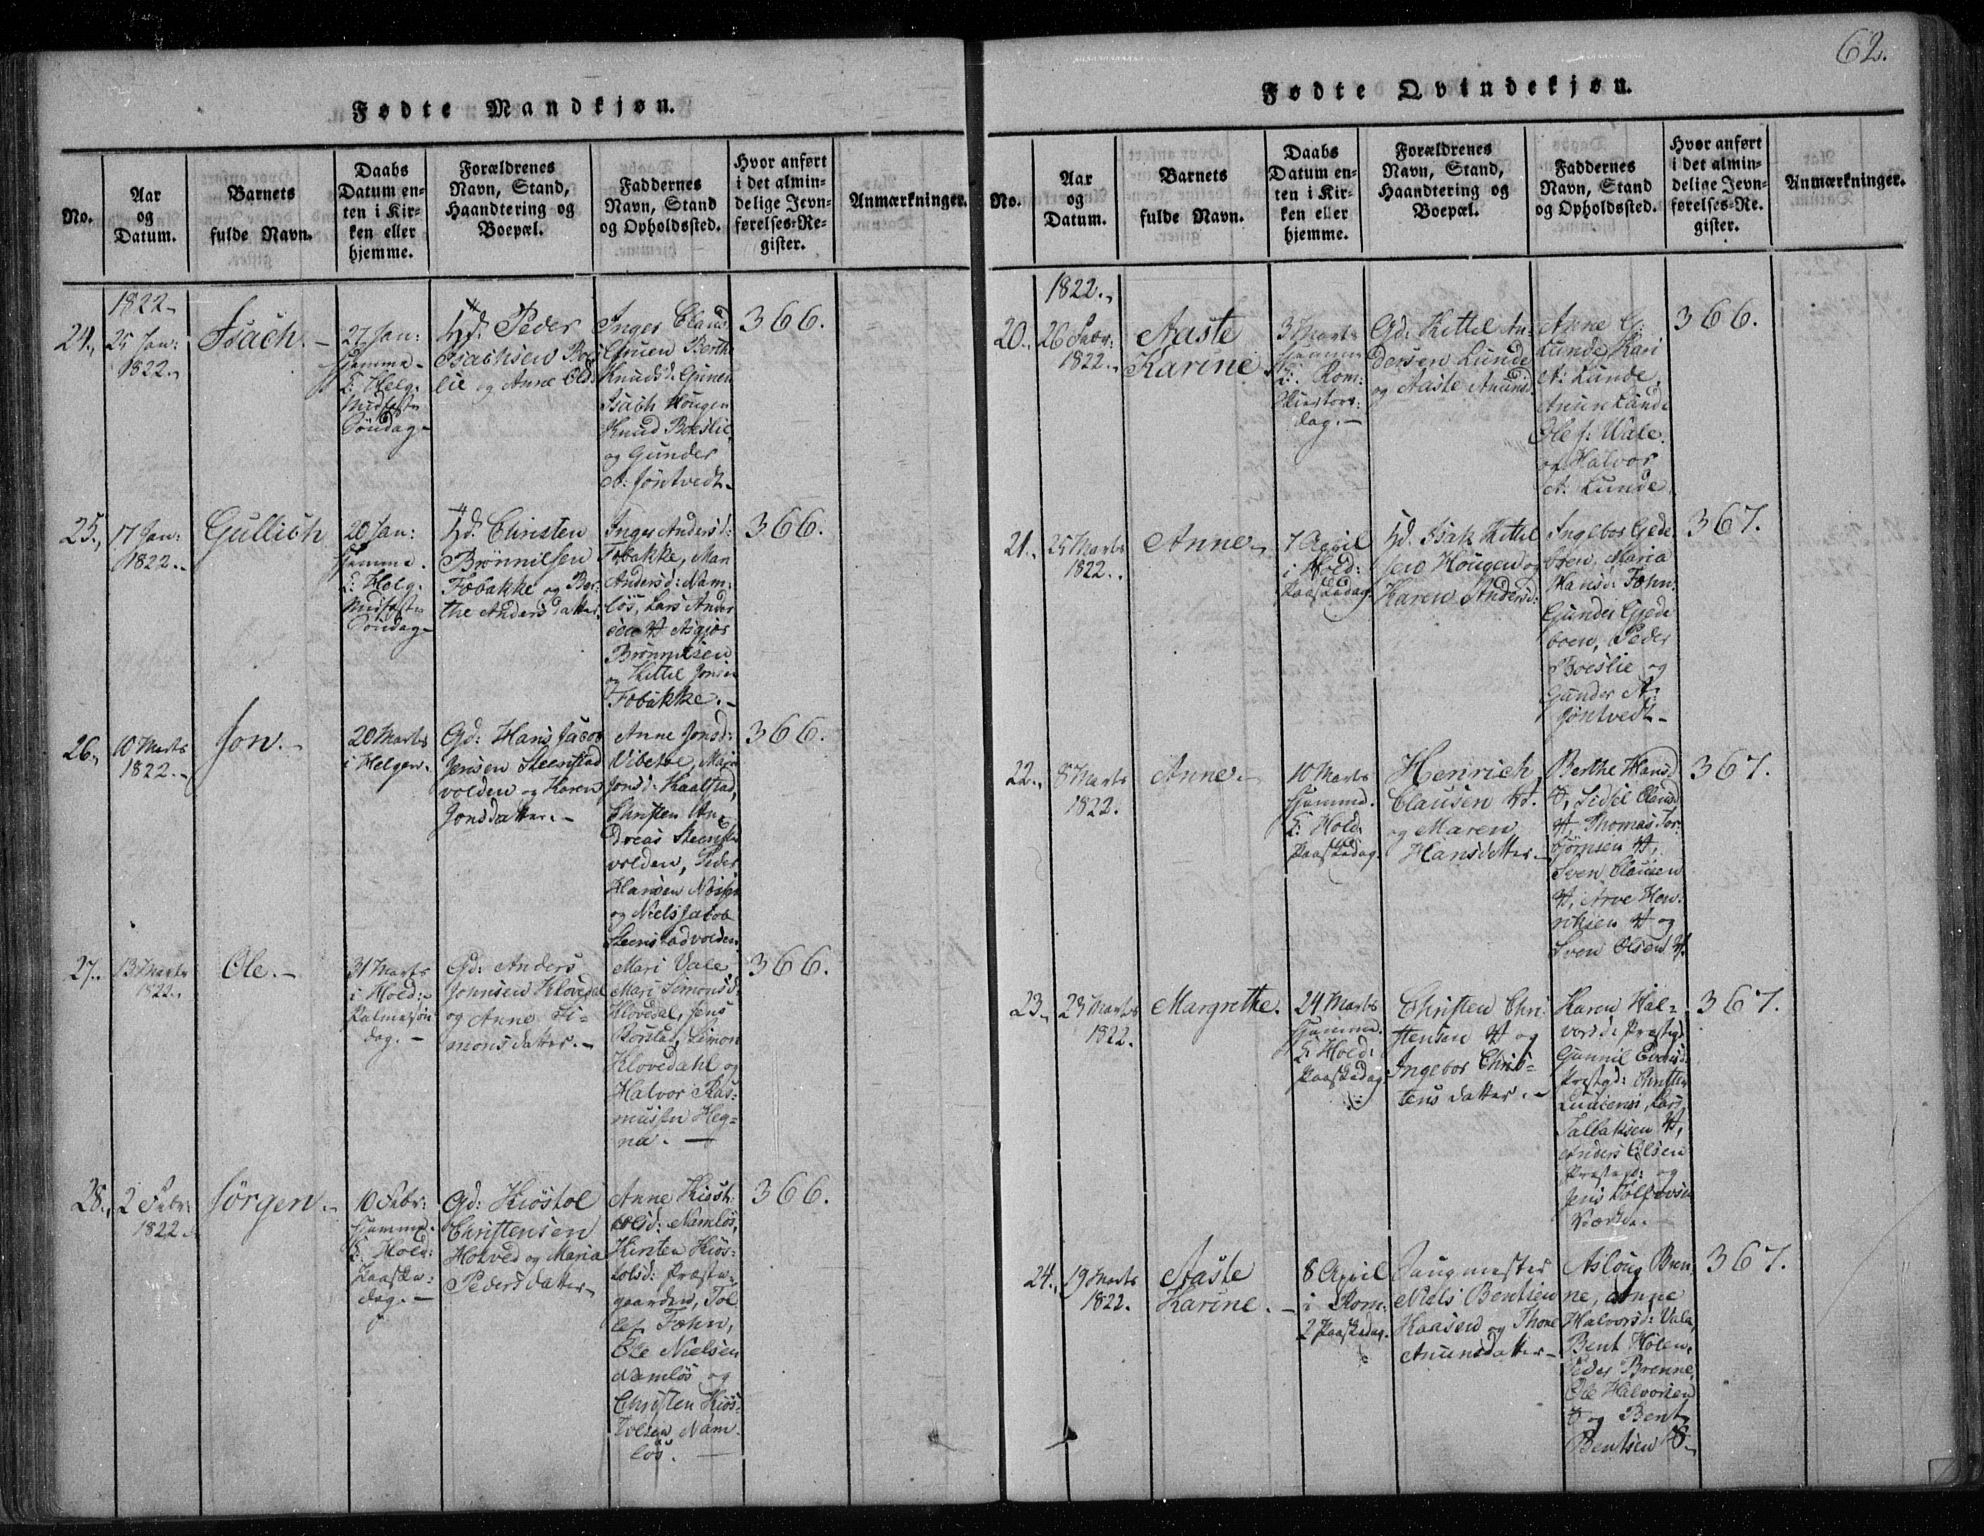 62.
Fødte Mandkjøn.
No.
Aar
og
Datum.
Barnets
fulde Navn.
Daabs
Datum en-
ten i Kir-
ken eller
hjemme.
Forældrenes
Navn, Stand,
Haandtering og
Boepæl.
Faddernes
Navn, Stand
og Opholdssted.
Hvor anført
i det almin-
delige Jevn-
førelses-Re-
gister.
Anmærkninger.
1822.
24.
25 Jan:
1822.
Isach.
27 Jan:
hjemme
Midfaste
Søndag
Peder
Isachsen Boes
lie og Anne
Inger
Berthe
Knudsd:
Isach Hougen
Knud Boeslie,
og Gunder
A: Jøntvedt
366.
25.
17 Jan:
1822.
Gullich
20 Jan:
hjemme.
Midfaste
Søndag
Christen
Brønnilsen
Fobakke og Ber-
the Anders datter.
Inger Andersd:
Fobakke, Mari
Andersd: Nam-
løs, Lars Ander
sen
Brønnilsen
og Kittel
Fobakke.
366.
26.
10 Marts
1822.
Jon.
20 Marts
i Helgen.
Gd: Hans Jacob
Jensen Steenstad
volden og Karen
Jonsdatter.
Anne Jonsd:
Mari
Jonsd: Kaalstad,
Christen An-
dreas Steenst.
volden, Peder
Hansen
og Niels Jacob
Steenstadvolden.
366.
27.
13 Marts
1822.
Ole.
31 Marts
i Hold:
Palmesøn
dag.
Gd: Anders
Johnsen Klovedal
og Anne Si-
monsdatter.
Mari Vale,
Mari Simonsd:
Klovedal, Jens
Simon
Klovedahl og
Halvor Ras-
mussen Heg-
na.
366.
28.
2 Febr:
1822.
Jørgen.
10 Febr:
hjemme.
Hold:
Paaske-
dag.
Gd: Kiøstol
Christensen
Holved og Maria
Pedersdatter
Anne Kiøst-
olsd: Namløs,
Kirsten Kiøs-
tolsd: Præste-
gaarden, Tol
lef Fæhn,
Ole Nielsen
Namløs og
Christen Kiøs-
tolsen Nam-
løs.
366.
Fødte Qvindekjøn.
No.
Aar
og
Datum.
Barnets
fulde Navn.
Daabs
Datum en-
ten i Kir-
ken eller
hjemme.
Forældrenes
Navn, Stand,
Haandtering og
Boepæl.
Faddernes
Navn, Stand
og Opholdssted.
Hvor anført
i det almin-
delige Jevn-
førelses-Re-
gister.
Anmærkninger.
1822.
20.
26 Febr:
1822.
Aaste
Karine
3 Marts
hjemme
Rom:
Skiertors-
dag.
Gd: Kittel An-
dersen Lunde
og Aaste Anunds
Anne G:
Lunde, Kari
A: Lunde,
Lunde
Ole J: Vale.
og Halvor
A: Lunde.
366.
21.
25 Marts
1822.
Anne
7 April
i Hold:
Paaskedag
Isak Kittel
sen Hougen og
Karen Andersd:
Ingebor Gjede
boen, Maria
Hansd: Fæhn.
Gunder Gjede
boen, Peder
Boeslie og
Gunder A:
Jøntvedt
367.
22.
8 Marts
1822.
Anne.
10 Marts
hjemme.
Hold:
Paaskedag.
Henrich
Clausen
og Maren
Hansdatter
Berthe Hansd
Sidsel Clausd
Thomas Tor-
bjørnsen
Sven Clausen
Arve Hen-
richsen og
Sven Olsen
367.
23.
23 Marts
1822.
Margrethe.
24 Marts
hjemme.
Hold:
Paaskedag
Christen Chri-
stensen og
Ingebor Chris-
tensdatter.
Karen Hal-
vorsd: Præstgd:
Gunnil Evensd:
Præstgd: Christen
Lars
Anders Olsen
Præstgd: og
Jens
367.
24.
19 Marts
1822.
Aaste
Karine.
8 April
i Rom:
2 Paaskedag.
Saugmester
Niels Bentsen
Haasen og Thone
Anunsdatter
Asloug Bren-
ne, Anne
Halvorsd: Vala,
Bent Holen,
Peder Brenne,
Ole Halvorsen
og Bent
Bentsen
367.